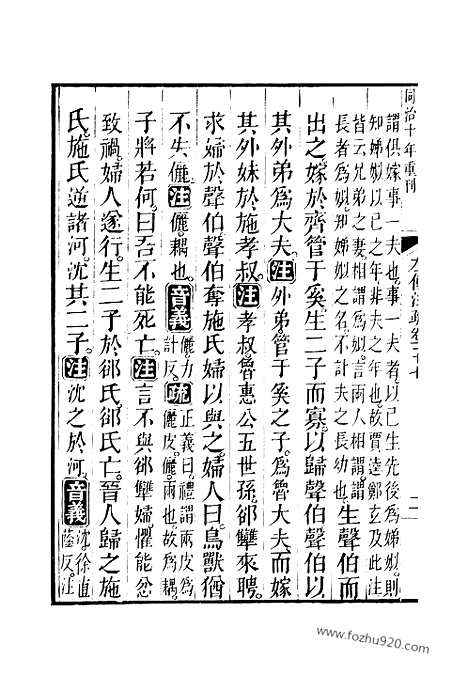 同治十年重刊
左傳注疏卷二十七
謂俱嫁事一夫也事一夫者以已生先後爲娣姒則
知娣姒以已之年非夫之年也故賈逵鄭玄及此注
皆云兄弟之妻相謂爲姒言兩人相謂謂
長者爲姒知娣姒之名不計夫之長幼也
生聲伯而
出之嫁於齊管于奚生二子而寡以歸聲伯聲伯以
其外弟爲大夫注外弟管于奚之子爲魯大夫而嫁
其外妹於施孝叔注孝叔魯惠公五世孫郤犫來聘
求婦於聲伯聲伯奪施氏婦以與之婦人曰鳥獸猶
不失儷注儷耦也音義儷力計反疏正義曰禮謂兩皮爲儷皮儷兩也故爲耦
子將若何曰吾不能死亡注言不與郤犫婦懼能忿
致禍婦人遂行生二子於郤氏郤氏亡晉人歸之施
氏施氏逆諸河沈其二子注沈之於河音義沈徐直蔭反注
www.fozhu920.com